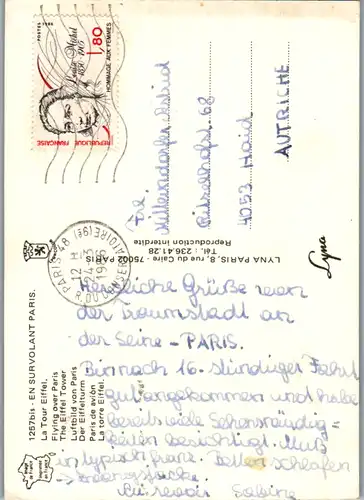 1257bis - EN SURVOLANT PARIS.
La Tour Eiffel.
Flying over Paris
The Eiffel Tower
Luftbild von Paris
Der Eiffelturm
Paris de avión
La torre Eiffel.
Herzliche Grüße von
der Traumstadt an
der Seine - PARIS.
Bin nach 16-stündiger Fahrt
gut angekommen und habe
bereits viele Sehenswürdig-
keiten besichtigt. Muß
in typisch franz. Betten schlafen
Au revoir Sabine
PARIS 48
12 H
24-3
R. DU CONSERVATOIRE (9e)
LYNA PARIS, 8, rue du Caire - 75002 PARIS
Tél.: 236.41.28
Reproduction interdite
Lyna
POSTES 1986
1,80
Louise Michel
1830-1905
HOMMAGE AUX FEMMES
REPUBLIQUE FRANÇAISE
Astrid
68
4053 Haid
AUTRICHE